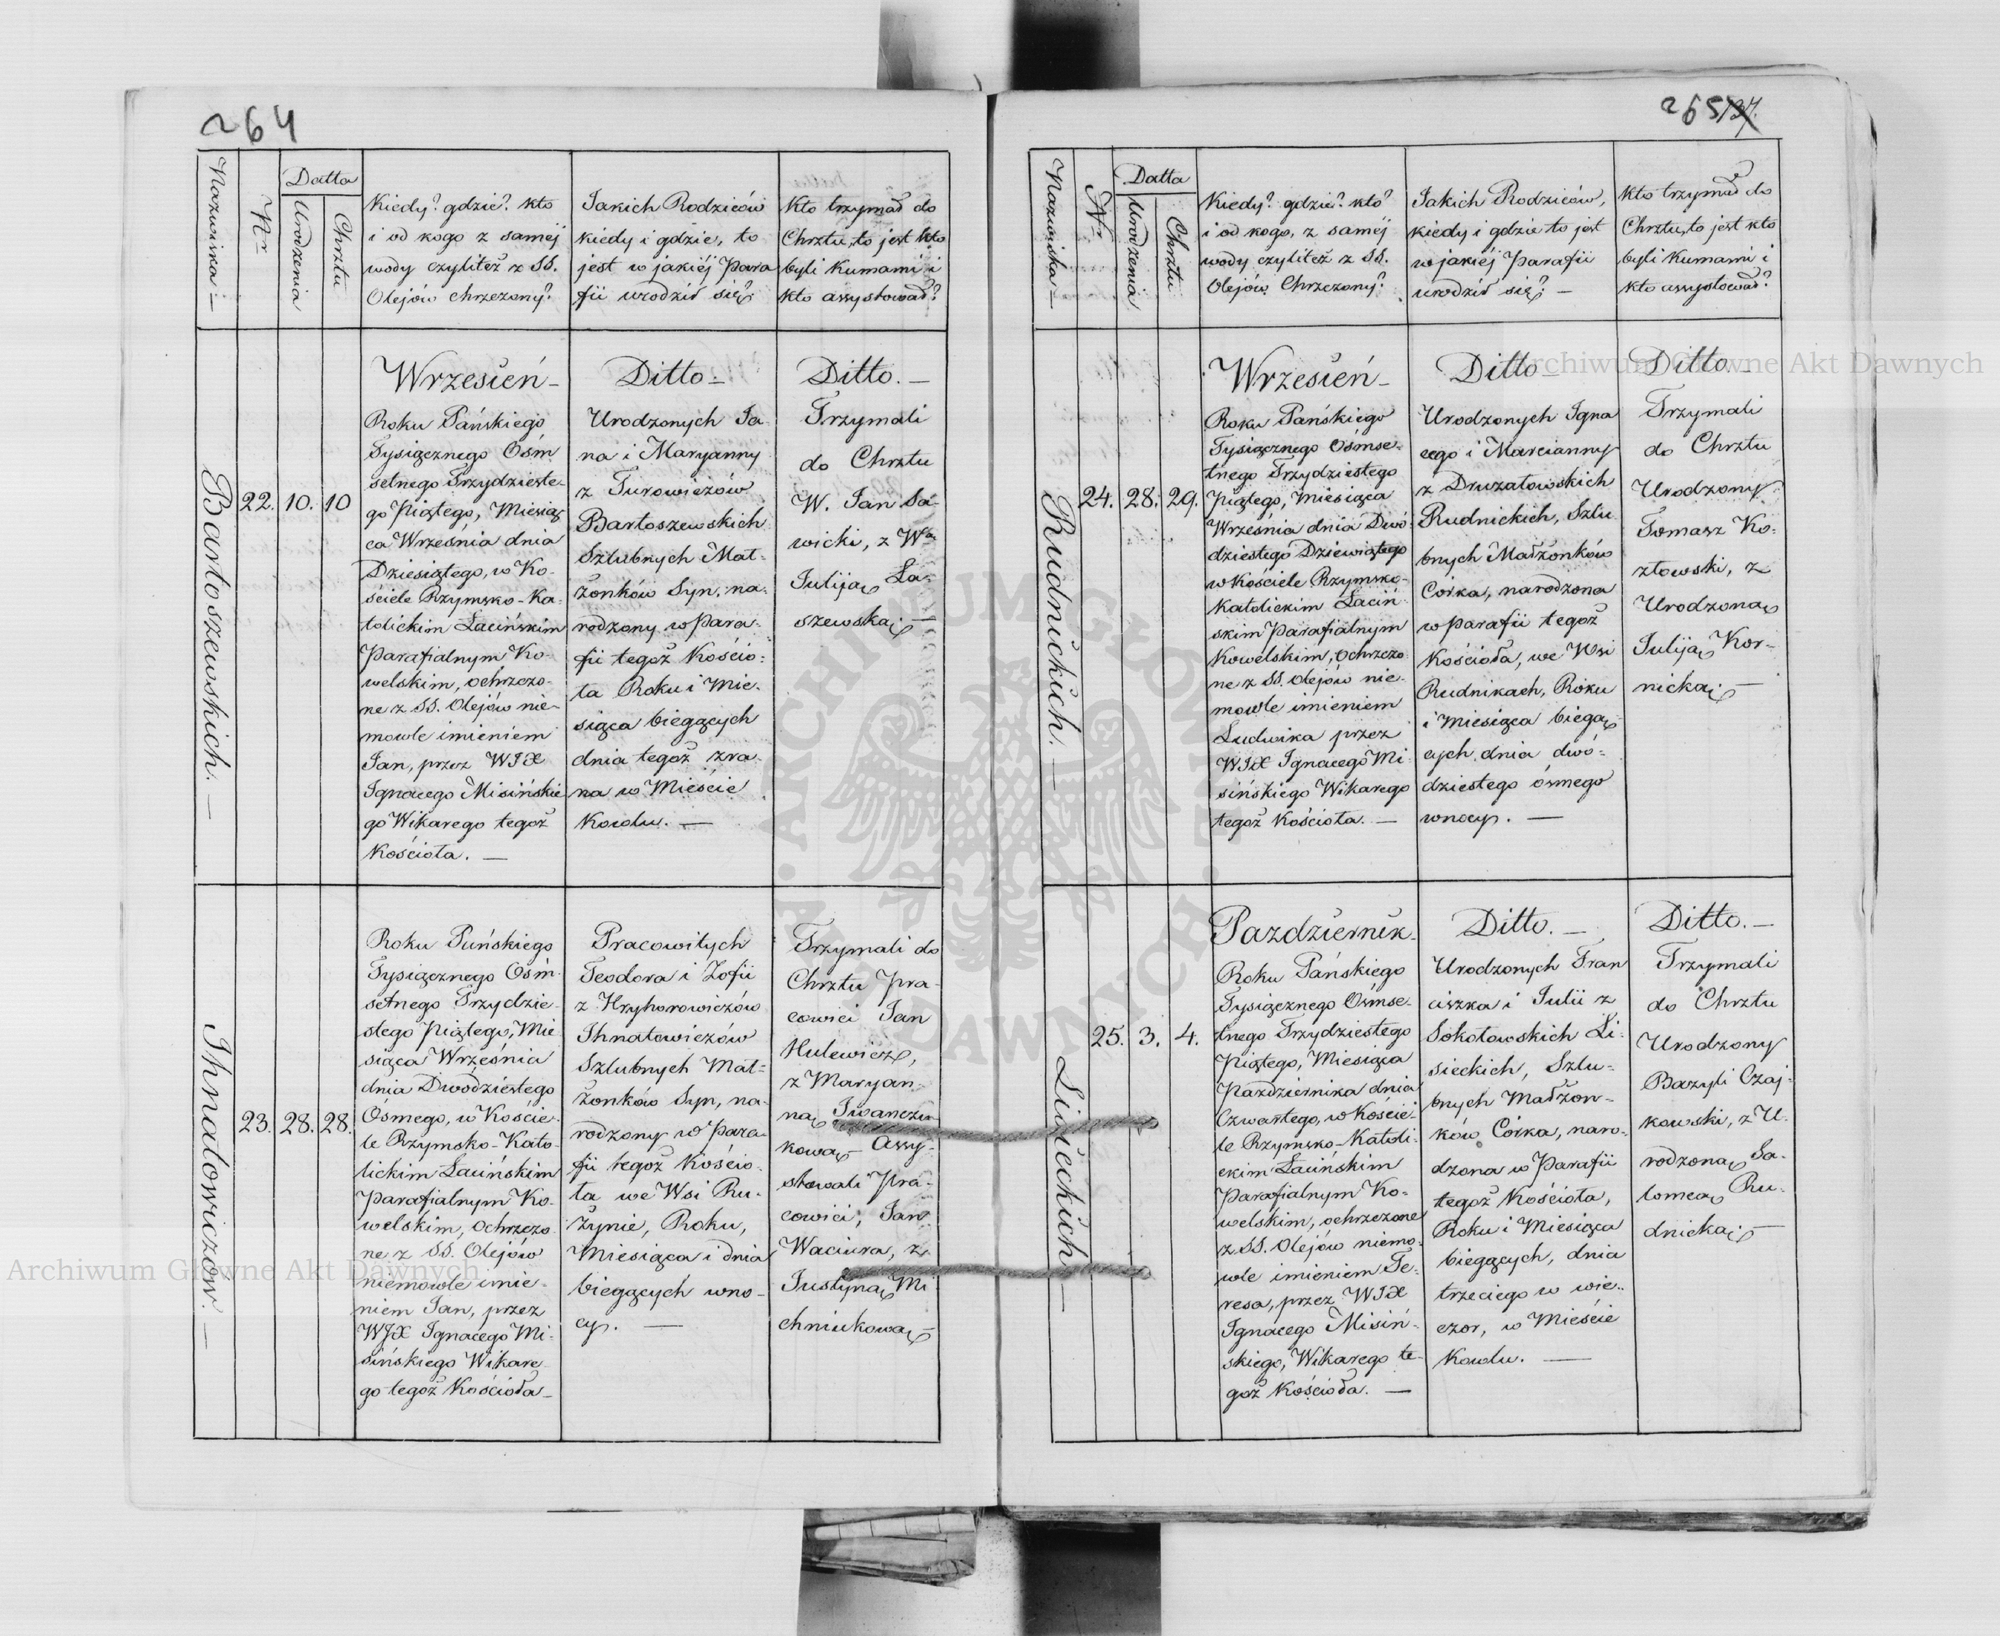 264
Nazwiska. —
Nr
Datta
Urodzenia
Chrztu
Kiedy? gdzie? kto
i od kogo z samej
wody czyliteż z SS.
Olejów chrzczony?
Jakich Rodziców
kiedy i gdzie, to
jest w jakiéj Para
fii urodził się?
Kto trzymał do
Chrztu, to jest kto
byli Kumami i
kto assystował?
Bartoszewskich. —
22.
10.
10
Wrzesień —
Roku Pańskiego
Tysiącznego Ośm
setnego Trzydzieste-
go Piątego, Miesią
ca Września dnia
Dziesiątego, w Ko-
ściele Rzymsko-Ka-
tolickim Łacińskim
Parafialnym Ko-
welskim, ochrzczo-
ne z SS. Olejów nie-
mowle imieniem
Jan, przez WJX
Ignacego Misińskie
go Wikarego tegoż
Kościoła. —
Ditto —
Urodzonych Ja
na i Maryanny
z Turowiczów
Bartoszewskich
Szlubnych Mał-
żonków Syn, na-
rodzony w Para-
fii tegoż Kościo-
ła Roku i Mie-
siąca bieggcych
dnia tegoż zra-
na w Mieście
Kowlu. —
Ditto. —
Trzymali
do Chrztu
W. Jan Sa-
wicki, z Wą
Juliją Ła-
szewską. —
Ihnatowiczów. —
23.
28.
28.
Roku Pańskiego
Tysiącznego Ośm-
setnego Trzydzie-
stego Piątego, Mie
siąca Września
dnia Dwódziestego
Ósmego, w Koście-
le Rzymsko-Kato-
lickim Łacińskim
Parafialnym Ko-
welskim, ochrzczo
ne z SS. Olejów
niemowle imie-
niem Jan, przez
WJX Ignacego Mi-
sińskiego Wikare-
go tegoż Kościoła —
Pracowitych
Teodora i Zofii
z Hryhorowiczów
Ihnatowiczów
Szlubnych Mał-
żonków Syn, na-
rodzony w Para-
fii tegoż Kościo-
ła we Wsi Ru-
żynie, Roku,
Miesiąca i dnia
bieggcych wno-
cy. —
Trzymali do
Chrztu Pra-
cowici Jan
Hulewicz,
z Maryan-
ną
kową — Assy-
stowali Pra-
cowici, Jan
Waciura, z
Justyną Mi
chniukową —
265
Nazwiska —
Nr
Datta
Urodzenia
Chrztu
Kiedy? gdzie? kto?
i od kogo, z saméj
wody czyliteż z SS.
Olejów Chrzczony?
Jakich Rodziców,
kiedy i gdzie to jest
w jakiéj Parafii
urodził się? —
Kto trzymał do
Chrztu, to jest kto
byli Kumami i
kto assystował?
Rudnickich. —
24.
28.
29.
Wrzesień —
Roku Pańskiego
Tysiącznego Ośmse-
tnego Trzydziestego
Piątego, Miesiąca
Września dnia Dwó-
dziestego Dziewiątego
w Kościele Rzymsko-
Katolickim Łaciń-
skim Parafialnym
Kowelskim, ochrzczo-
ne z SS. Olejów nie-
mowle imieniem
Ludwika przez
WJX Ignacego Mi
sińskiego Wikarego
tegoż Kościoła. —
Ditto —
Urodzonych Igna
cego i Marcianny
z Druzatowskich
Rudnickich, Szlu
bnych Małżonków
Córka, narodzona
w parafii tegoż
Kościoła, we Wsi
Rudnikach, Roku
i Miesiąca biegą-
cych dnia dwó-
dziestego ósmego
wnocy. —
Ditto. —
Trzymali
do Chrztu
Urodzony
Tomasz Ko-
złowski, z
Urodzoną
Juliją Kor-
nicką. —
Lisieckich —
25.
3.
4.
Pazdziernik.
Roku Pańskiego
Tysiącznego Ośmse-
tnego Trzydziestego
Piątego, Miesiąca
Pazdziernika dnia
Czwartego, w Koście-
le Rzymsko-Katoli-
ckim Łacińskim
Parafialnym Ko-
welskim, ochrzczone
z SS. Olejów niemo-
wle imieniem Te-
resa, przez WJX
Ignacego Misiń-
skiego, Wikarego te-
goż Kościoła. —
Ditto. —
Urodzonych Fran
ciszka i Julii z
Sokołowskich Li-
sieckich, Szlu-
bnych Małżon-
ków Córka, naro-
dzona w Parafii
tegoż Kościoła,
Roku i Miesiąca
bieggcych, dnia
trzeciego w wie-
czor, w Mieście
Kowlu. —
Ditto. —
Trzymali
do Chrztu
Urodzony
Bazyli Czaj-
kowski, z U-
rodzoną Sa-
lomeą Ru-
dnicką. —
Archiwum Główne Akt Dawnych
Archiwum Główne Akt Dawnych
ARCHIWUM GŁÓWNE AKT DAWNYCH